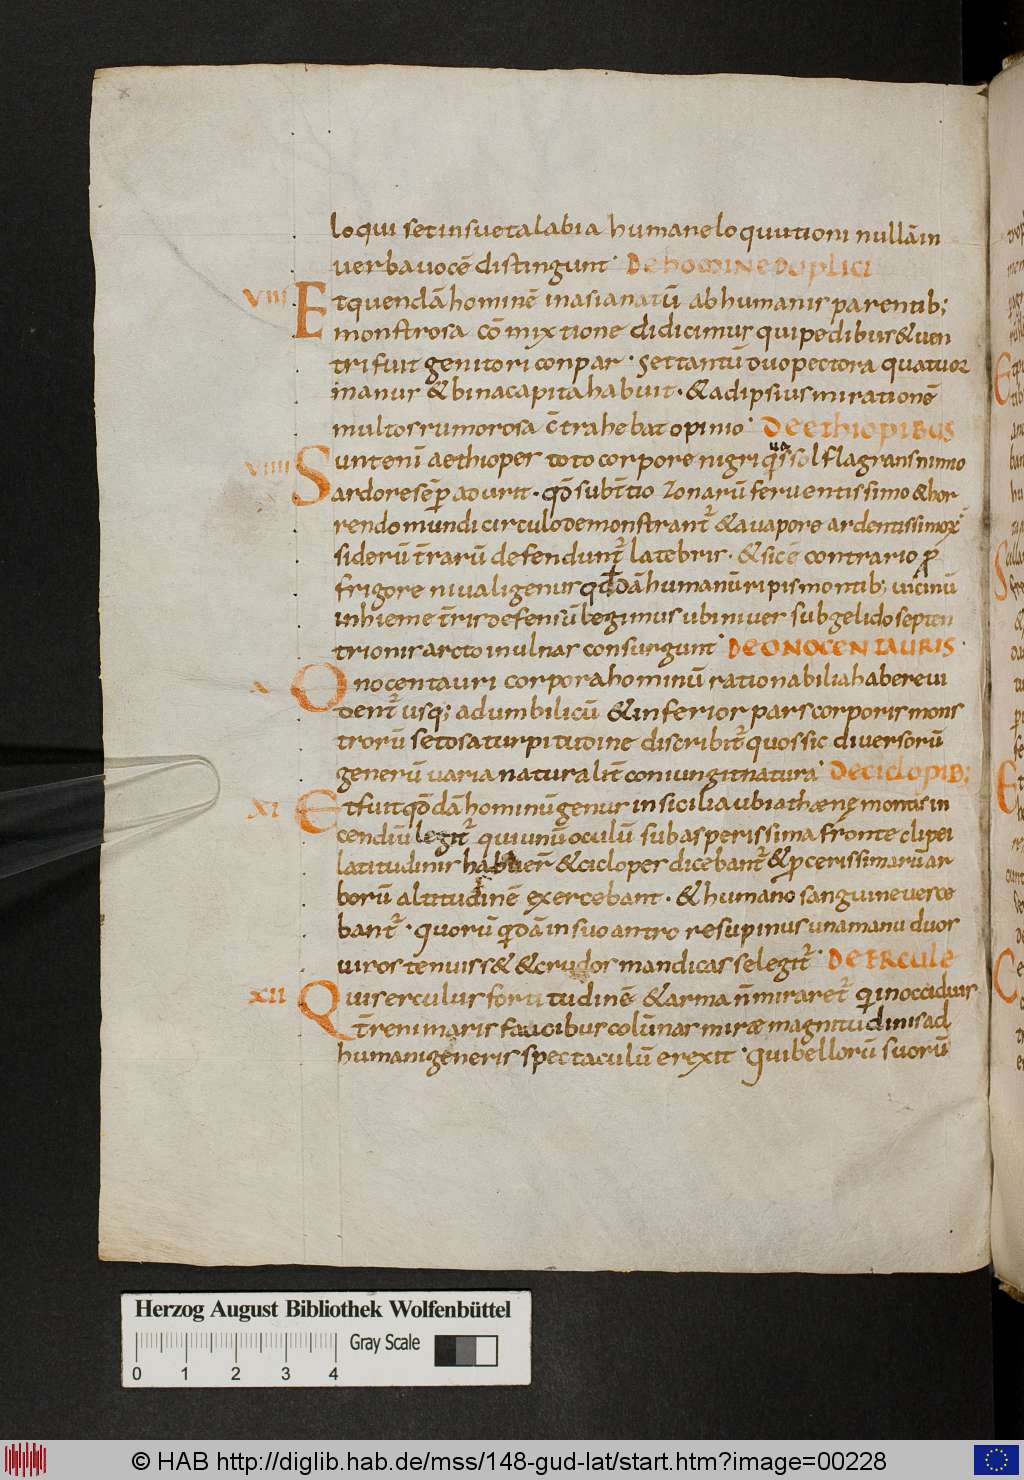 loqui set insueta labia humane loquutioni nullā in
verba vocē distingunt. DE HOMINE DUPLICI
VIII Et quendā hominē in asia natū ab humanis parentib;
monstrosa cōmixtione didicimus qui pedibus & ven
tri fuit genitori conpar. Set tantū duo pectora quatuor
manus & bina capita habuit. & ad ipsius mirationē
multos rumorosa c̄trahebat opinio. DE ETHIOPIBUS
VIIII Sunt enī aethiopes toto corpore nigri quos sol flagrans nimio
ardore sēp adurit. qđ sub t̄tio zonarū ferventissimo & hor
rendo mundi circulo demonstrant̄ & a vapore ardentissimoꝝ
siderū t̄rarū defendunt̄ latebris. & sic ē contrario p̄
frigore nivali genus qđdā humanū ripis montib; vicinū
in hieme t̄ris defensū legimus ubi niver sub gelido septen
trionis arcto in ulnas consurgunt. DE ONOCENTAURIS
X Onocentauri corpora hominū rationabilia habere vi
dent̄ usq; ad umbilicū & inferior pars corporis mons
trorū setosa turpitudine discribit̄ quos sic diversorū
generū varia naturalit̄ coniungit natura. DE CICLOPIB;
XI Et fuit qđdā hominū genus in sicilia ubi athæne montis in
cendiū legit̄ qui unū oculū sub asperissima fronte clipei
latitudinis habuer̄ & ciclopes dicebant̄ & p̄cerissimarū ar
borū altitudinē exercebant. & humano sanguine vesce
bant̄. quorū qidā in suo antro resupinus una manu duos
viros tenuiss& & crudos mandicasse legit̄. DE ERCULE
XII Quis erculis fortitudinē & arma n̄ miraret̄ qi in occiduis
t̄reni maris faucibus colūnas miræ magnitudinis ad
humani generis spectaculū erexit. qui bellorū suorū
Herzog August Bibliothek Wolfenbüttel
Gray Scale
0 1 2 3 4
© HAB http://diglib.hab.de/mss/148-gud-lat/start.htm?image=00228